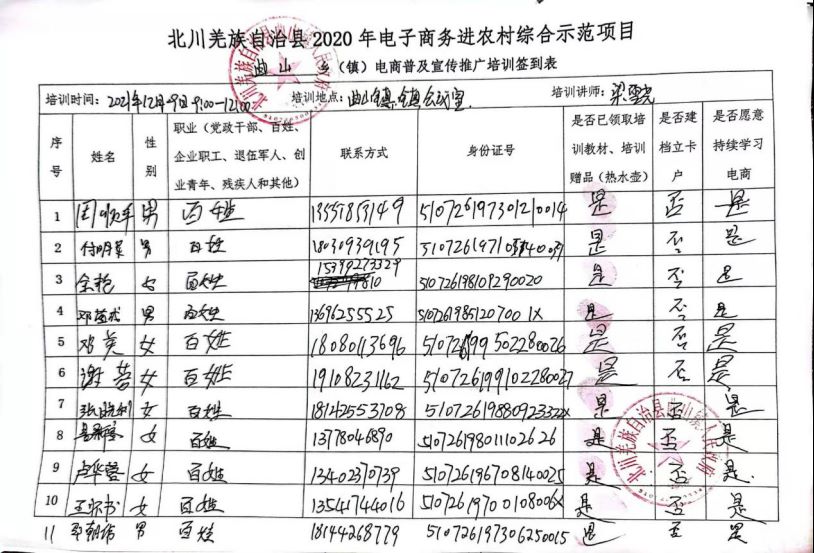 北川羌族自治县2020年电子商务进农村综合示范项目
曲山 乡（镇）电商普及宣传推广培训签到表
培训时间：2021年12月9日9:00-12:00 培训地点：曲山镇镇会议室 培训讲师：
序号 姓名 性别 职业（党政干部、百姓、企业职工、退伍军人、创业青年、残疾人和其他） 联系方式 身份证号 是否已领取培训教材、培训赠品（热水壶） 是否建档立卡户 是否愿意持续学习电商
1 男 百姓 是 否 是
2 男 百姓 18030939195 是 否 是
3 女 百姓 15390273329 510726198109290020 是 否 是
4 男 百姓 13696255525 51072619851207001X 是 否 是
5 邓英 女 百姓 18080113696 是 否 是
6 谢蓉 女 百姓 19108231162 510726199102280027 是 否 是
7 女 百姓 18142553708 是 否 是
8 女 百姓 13778046890 是 否 是
9 卢华蓉 女 百姓 13402370739 510726196708140025 是 否 是
10 女 百姓 13541744016 是 否 是
11 男 百姓 18144268779 510726197306250015 是 否 是